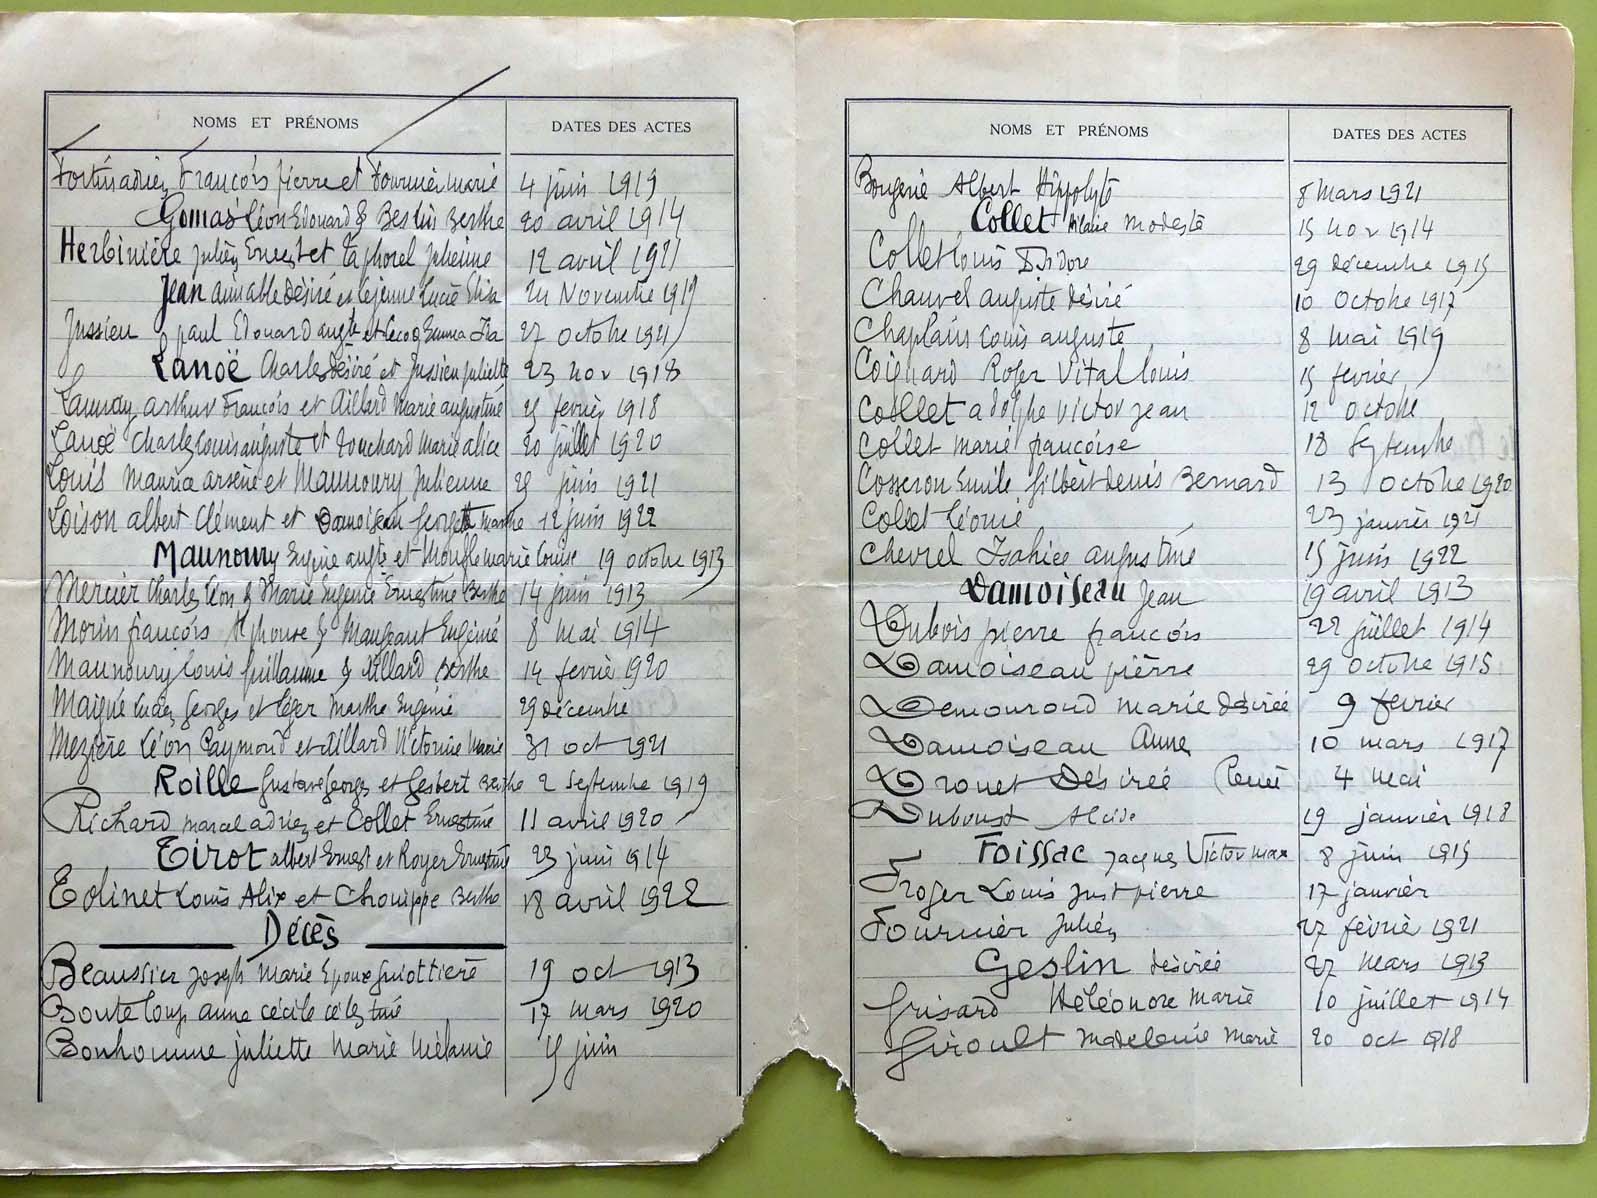 NOMS ET PRÉNOMS DATES DES ACTES
Fortin adrien François pierre et Fournier marie 4 juin 1919
Gomas Léon Edouard & Beslin Berthe 20 avril 1914
Herbinière Julien Ernest et Taphorel Julienne 12 avril 1921
Jean aimable désiré et Lejeune Lucie Elisa 24 Novembre 1919
Jussieu paul Edouard augte et Lecoq Emma 27 octobre 1921
Lanoë Charles désiré et Jussieu juliette 23 nov 1918
Launay arthur François et Aillard Marie augustine fevrier 1918
Lanoë Charles Louis auguste et Touchard Marie alice 20 juillet 1920
Louis Maurice arsène et Maunoury Julienne juin 1921
Loison albert Clément et Damoiseau Georgette marthe 12 juin 1922
Maunoury Eugène augte et Mouffle marie Louise 19 octobre 1913
Mercier Charles Léon & Marie Eugénie Ernestine Berthe 14 juin 1913
Morin françois Alphonse & Maugeant Eugénie 8 mai 1914
Maunoury Louis Guillaume & Aillard Berthe 14 fevrier 1920
Maigné Lucien Georges et Léger Marthe Eugénie 29 décembre
Mezière Léon Raymond et Aillard Victorine Marie 31 oct 1921
Roille Gustave Georges et Gesbert Berthe 2 Septembre 1919
Richard Marcel adrien et Collet Ernestine 11 avril 1920
Tirot albert Ernest et Royer Ernestine 23 juin 1914
Tolinet Louis Alix et Chouippe Berthe 18 avril 1922
Décès
Beaussier Joseph Marie Epoux Guiottiere 19 oct 1913
Bouteloup anne cécile célestine 17 mars 1920
Bonhomme juliette Marie Mélanie 15 juin
NOMS ET PRÉNOMS DATES DES ACTES
Bougerie Albert Hippolyte 8 mars 1921
Collet Hilaire Modeste 15 nov 1914
Collet Louis Isidore 29 décembre 1915
Chauvel auguste désiré 10 Octobre 1917
Chaplain Louis auguste 8 mai 1919
Coignard Roger Vital Louis 15 fevrier
Collet adolphe victor jean 12 octobre
Collet Marie françoise 18 Septembre
Cosseron Emile Gilbert Denis Bernard 13 octobre 1920
Collet Léonie 23 janvier 1921
Chevrel augustine 15 juin 1922
Damoiseau Jean 19 avril 1913
Dubois pierre françois 22 juillet 1914
Damoiseau pierre 29 octobre 1915
Demouroud marie désirée 9 fevrier
Damoiseau Anne 10 mars 1917
Drouet Désirée René 4 mai
Duboust Alcide 19 janvier 1918
Foissac Jacques Victor max 8 juin 1915
Froger Louis Just pierre 17 janvier
Fournier Julien 27 fevrier 1921
Geslin désirée 27 mars 1913
Grisard Héléonore Marie 10 juillet 1914
Giroult Madeleine Marie 20 oct 1918